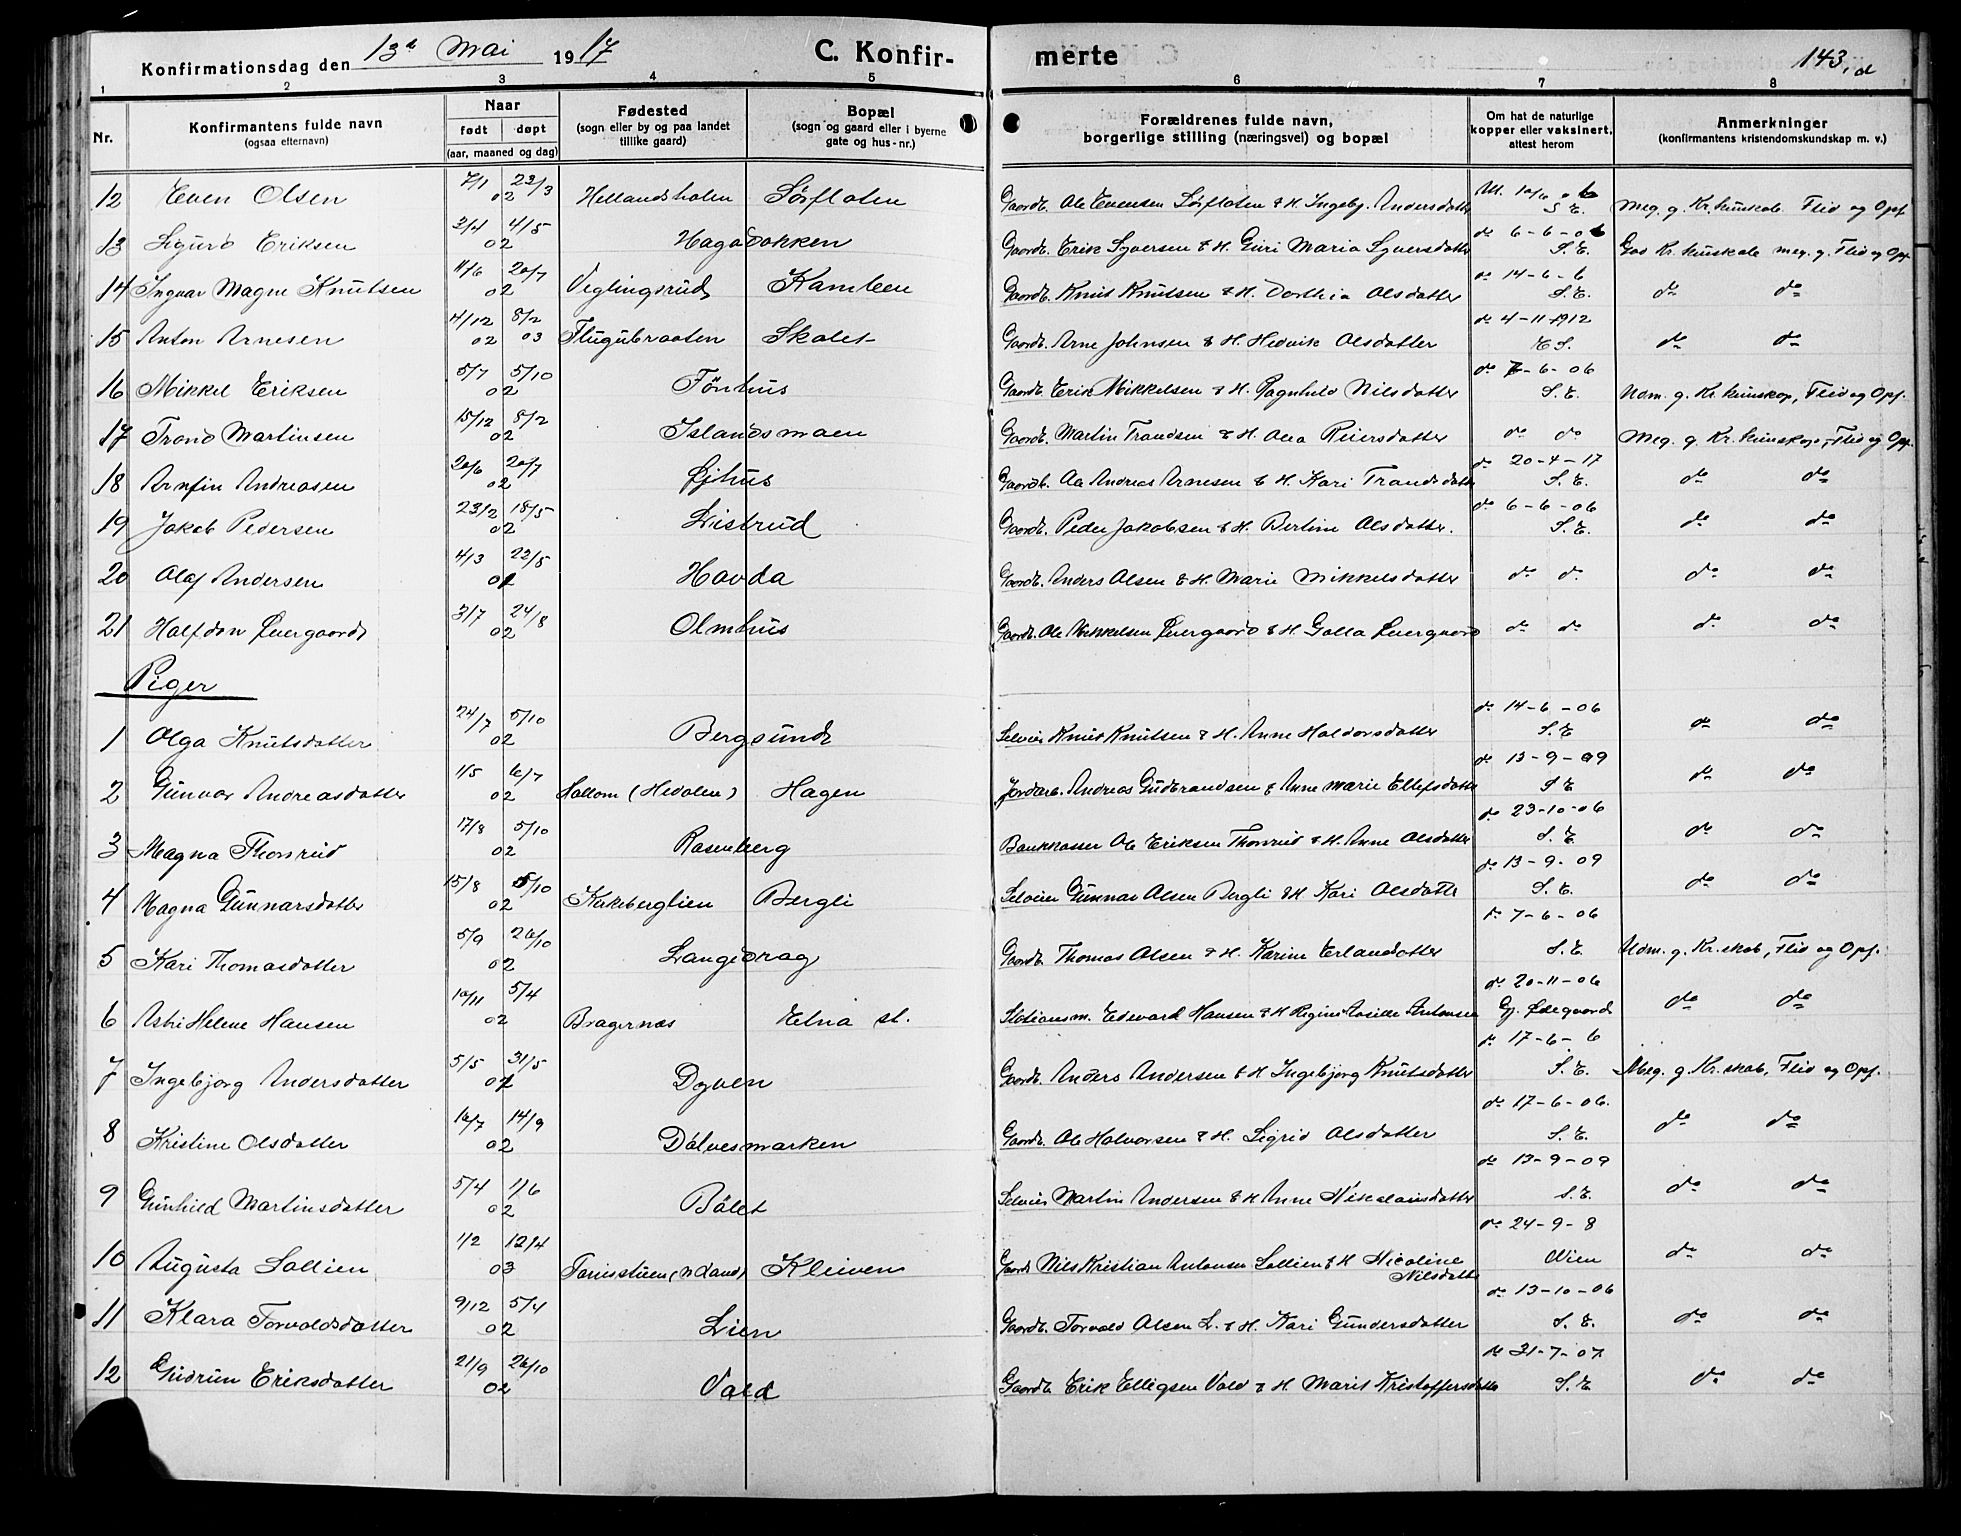 Konfirmationsdag den 13d Mai 1917 C. Konfir- merte 143, d
1 2 3 4 5 6 7 8
Nr. Konfirmantens fulde navn (ogsaa efternavn) Naar født døpt (aar, maaned og dag) Fødested (sogn eller by og paa landet tillike gaard) Bopæl (sogn og gaard eller i byerne gate og hus-nr.) Forældrenes fulde navn, borgerlige stilling (næringsvei) og bopæl Om hat de naturlige kopper eller vaksinert, attest herom Anmerkninger (konfirmantens kristendomskundskap m. v.)
12 Even Olsen 7/1 23/3 02 Hellandshalen Sørfloten Gaardb. Ole Evensen Sørfloten & H. Ingebj. Andersdatter 10/6 06 S. E. Meg. g. Kr. kunskab Flid og Opf.
13 Sigurd Eriksen 2/4 4/5 02 Hagabakken Gaardb. Erik Syversen & H. Guri Maria Syversdatter do 6-6-06 S. E. God Kr. kunskab meg. g. Flid og Opf.
14 Ingvar Magne Knutsen 11/6 20/7 02 Veglingsrud Kamben Gaardb. Knut Knutsen & H. Dorthia Olsdatter do 14-6-6 S. E. do do
15 Anton Arnesen 4/12 02 8/2 03 Flugubraaten Skalet Gaardb. Arne Johnsen & H. Hedvik Olsdatter do 4-11-1912 E S. do do
16 Mikkel Eriksen 5/7 5/10 02 Fönhus Gaardb. Erik Mikkelsen & H. Ragnhild Nilsdatter do 7-6-06 S. E. Udm. g. Kr. kunskap, Flid og Opf.
17 Trond Martinsen 15/12 8/2 02 Islandsmoen Gaardb. Martin Trondsen & H. Olea Reiersdatter do do Meg. g. Kr. kunskap, Flid og Opf.
18 Arnfin Andreasen 20/6 20/7 02 Øjhus Gaardb. Aa Andreas Arnesen & H. Kari Trondsdatter do 20-4-17 S. E. do do
19 Jakob Pedersen 23/2 18/5 02 Listrud Gaardb. Peder Jakobsen & H. Bertine Olsdatter. do 6-6-06 S. E. do do
20 Olaf Andersen 4/3 22/5 02 Hovda Gaardb. Anders Olsen & H. Marie Mikkelsdatter do do do do
21 Halfdan Øvergaard 3/7 24/8 02 Olmhus Gaardb. Ole Mikkelsen Øvergaard & H. Golla Øvergaard do do do do
Piger
1 Olga Knutsdatter 24/7 5/10 02 Bergsund Selveier Knut Knutsen & H. Anne Haldorsdatter do 14-6-06 S. E do do
2 Gunvor Andreasdatter 1/5 6/7 02 Sollom (Hedalen) Hagen Jordarb. Andreas Gudbrandsen & Anne Marie Ellefsdatter do 13-9-09 S E do do
3 Magna Thonrud 17/8 5/10 02 Rosenberg Bankkasser Ole Eriksen Thonrud & H. Anne Olsdatter do 23-10-06 S. E do do
4 Magna Gunnarsdatter 15/8 5/10 02 Kakeberglien Bergli Selveier Gunnar Olsen Bergli & H. Kari Olsdatter do 13-9-09 S. E. do do
5 Kari Thomasdatter 5/9 26/10 02 Langedrag Gaardb. Thomas Olsen & H. Karine Erlandsdatter do 7-6-06 S. E Udm. g. Kr. skab, Flid og Opf.
6 Astri Helene Hansen 10/11 5/4 02 Bragernæs Etna st. Stationsm. Edevard Hansen & H Regine Rosilie Antonsen do 20-11-06 Gj. Ødegaard do do
7 Ingebjørg Andersdatter 5/5 31/5 02 Dyven Gaardb. Anders Andersen & H Ingebjørg Knutsdatter do 17-6-6 S. E. Meg. g. Kr. skab, Flid og Opf.
8 Kristine Olsdatter 16/7 14/9 02 Dölvesmarken Gaardb. Ole Halvorsen & H. Sigrid Olsdatter do 17-6-06. S. E. do do
9 Gunhild Martinsdatter 5/4 1/6 02 Bölet Selveier Martin Andersen & H Anne Nikolausdatter do 13-9-09 S. E. do do
10 Augusta Sollien 1/2 12/4 03 Tonsstuen (N Land) Kleiven Gaardb Nils Kristian Antonsen Sollien & H Nicoline Nilsdatter do 24-9-8 Wien do do
11 Klara Torvaldsdatter 9/12 5/4 02 Lien Gaardb. Torvald Olsen L. & H. Kari Gundersdatter do 13-10-06 S. E. do do
12 Gudrun Eriksdatter 21/9 26/10 02 Vold Gaardb. Erik Elligsen Vold & H Marit Kristoffersdatter do 31-7-07. S. E do do